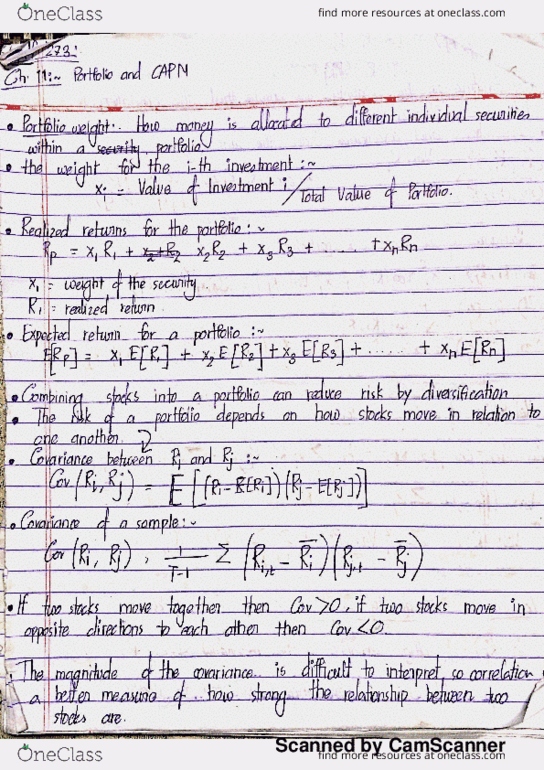 OneClass find more resources at oneclass.com
273:
Ch 11:~ Portfolio and CAPM
• Portfolio weight:. How money is allocated to different individual securities
within a security portfolio
• the weight for the i-th investment :~
xi = Value of Investment i / Total Value of Portfolio.
• Realized returns for the portfolio :~
Rp = x1 R1 + x2+R2 x2R2 + x3 R3 + ..... + xnRn
x1 = weight of the security
R1 = realized return
• Expected return for a portfolio :~
E[Rp] = x1 E[R1] + x2 E[R2] + x3 E[R3] + ...... + xn E[Rn]
• Combining stocks into a portfolio can reduce risk by diversification
• The risk of a portfolio depends on how stocks move in relation to
one another.
• Covariance between Ri and Rj :~
Cov (Ri, Rj) = E [(Ri - E[Ri])(Rj - E[Rj])]
• Covariance of a sample:~
Cov (Ri, Rj) = 1/T-1 Σ (Ri,t - R̄i)(Rj,t - R̄j)
• If two stocks move together then Cov>0, if two stocks move in
opposite directions to each other then Cov<0.
• The magnitude of the covariance is difficult to interpret, so correlation
a better measure of how strong the relationship between two
stocks are.
Scanned by CamScanner
OneClass find more resources at oneclass.com